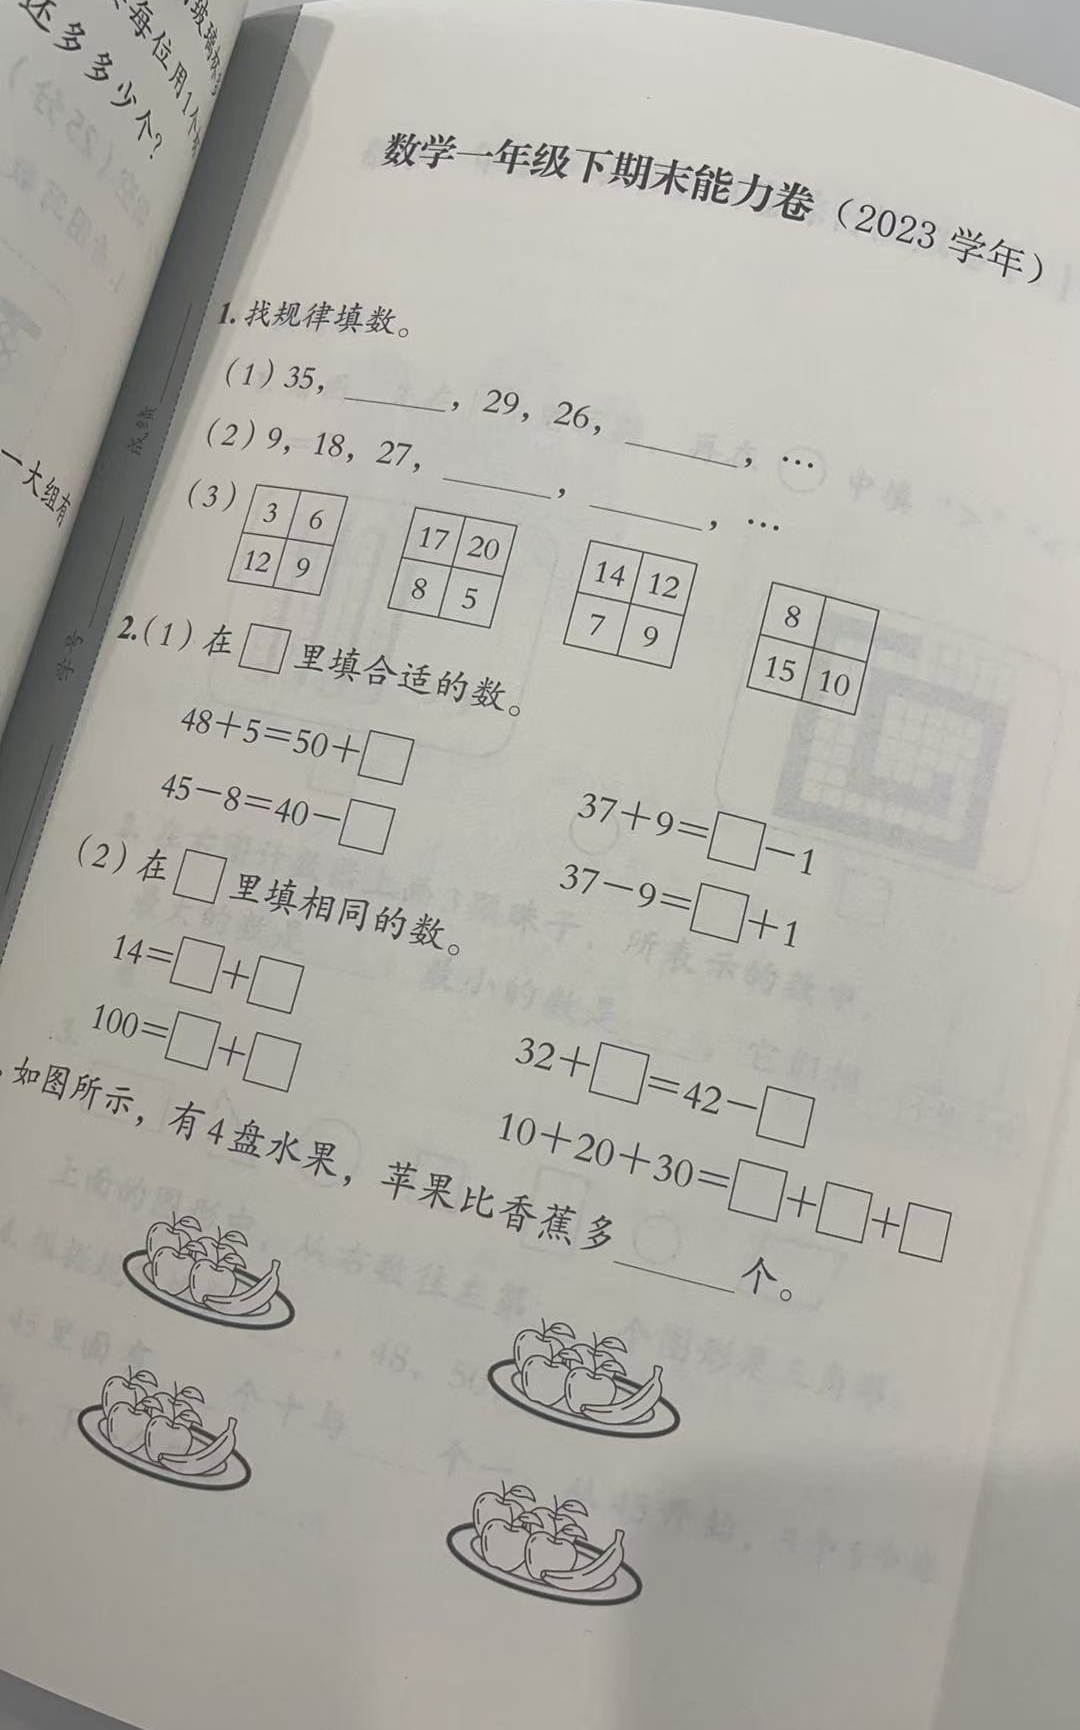 玻璃杯
每位用1个
还多多少个？
一大组有
成绩
学号
数学一年级下期末能力卷（2023 学年）
1. 找规律填数。
（1）35，____，29，26，____，…
（2）9，18，27，____，____，…
（3）
3 6
12 9
17 20
8 5
14 12
7 9
8
15 10
2.（1）在□里填合适的数。
48+5=50+□
37+9=□-1
45-8=40-□
37-9=□+1
（2）在□里填相同的数。
14=□+□
32+□=42-□
100=□+□
10+20+30=□+□+□
如图所示，有4盘水果，苹果比香蕉多____个。